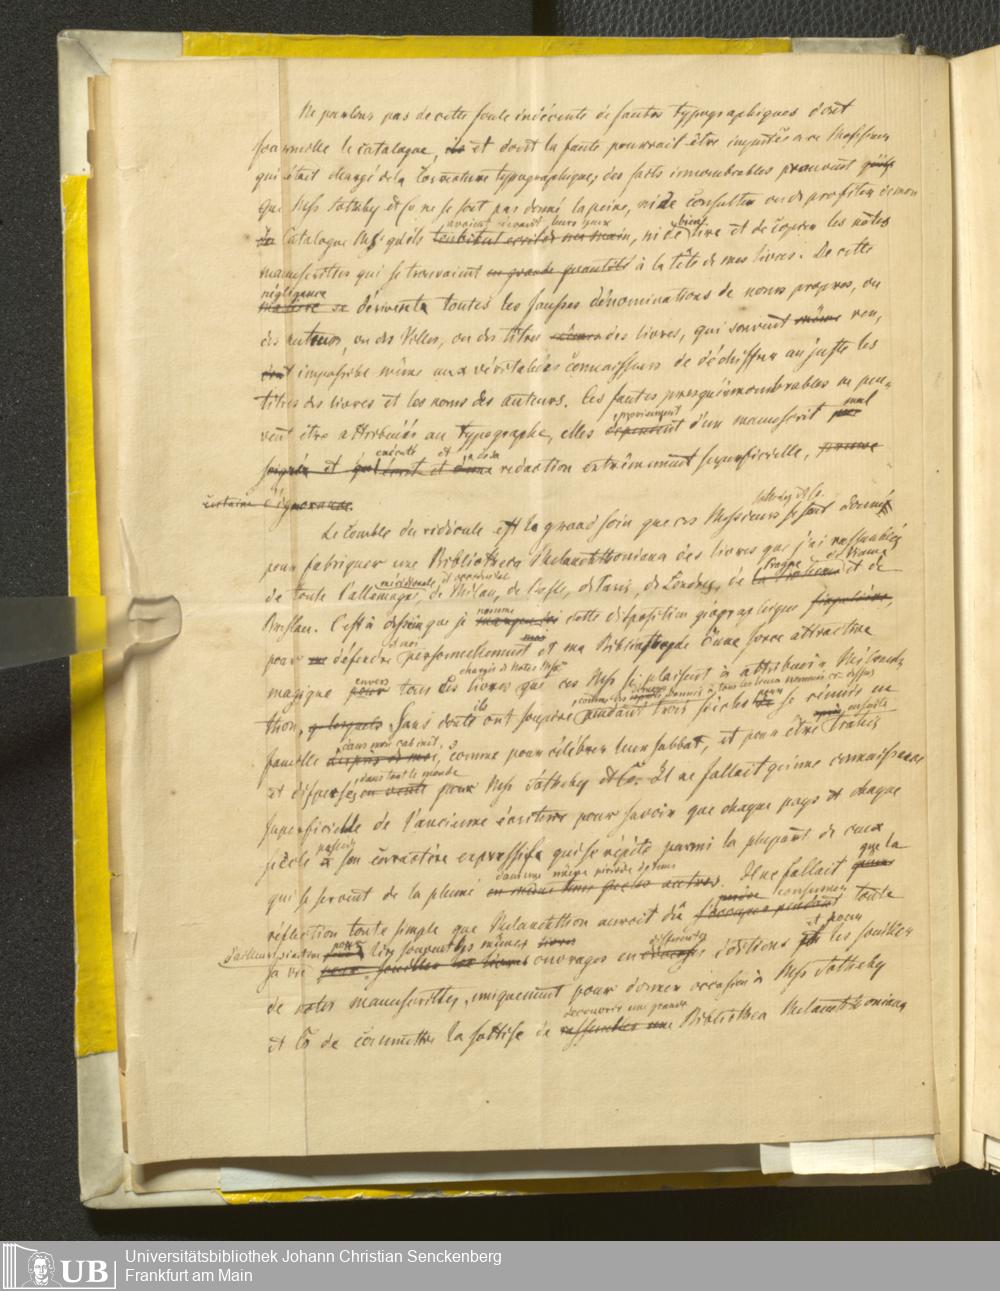 Ne parlons pas de cette foule indécente de fautes typographiques dont
fourmille le catalogue, et dont la faute pourrait être imputée a ce Messieur
qui était chargé de la Correcture typographique, des faits innombrables prouvent
que Mss Sotheby et Co ne se sont pas donné la peine, ni de consulter ou de profiter de mon
avoient devant leurs yeux bien
Catalogue Ms. qu'ils, ni de lire et de copier les notes
manuscrittes qui se trouvaient en grande quantité à la tête de mes livres. De cette
négligence
dérivent toutes les fausses dénominations de noms propres, ou
des auteurs, ou des Villes, ou des titres des livres, qui souvent même ren,
impossible même aux véritables connaisseurs de déchiffrer au juste les
titres des livres et les noms des auteurs. Ces fautes presqu'innombrables ne peu-
provienent mal
vent être attribuées au typographe, elles dépendent d'un manuscrit
exécuté et de sa
soignée et redaction extrêmement superficielle, preuve
certaine d'ignorance.
Sotheby et Co.
Le comble du ridicule est le grand soin que ces Messieurs se sont donné
pour fabriquer une Bibliotheca Melanchthoniana des livres que j'ai rassemblés
méridionale et occidentale Prague de Vienne
de toute l'allemagne, de Milan, de Basle, de Paris, de Londres, de et de
nomme
Breslau. C'est à dessein que je cette disposition géographique singulière,
et moi
pour défendre personnellement et ma Bibliothèque d'une force attractive
envers chargés de notes Mss.
magique pour tous les livres que ces Mss se plaisent à attribuer à Melanch-
ils
thon, Sans doute ont soupiré pendant trois siècles se réunir en
dans mon cabinet ensuite
famille, comme pour célébrer leur sabbat, et pour être trahis
dans tout le monde
et dispersés en vente par Mss Sotheby et Co. Il ne fallait qu'une connaissance
superficielle de l'ancienne écriture pour savoir que chaque pays et chaque
siècle a son caractère expressif qui se répète parmi la plupart de ceux
dans une même période de tems
qui se servent de la plume. Il ne fallait que la
réflection toute simple que Melanchthon auroit dû consumer toute
sa vie pour lire souvent les mêmes livres ouvrages en differentes éditions et pour les souiller
de notes manuscrittes, uniquement pour donner occasion à Mss Sotheby
decouvrir une grande
et Co de committre la sottise de rassembler une Bibliotheca Melanchthoniana
UB
Universitätsbibliothek Johann Christian Senckenberg
Frankfurt am Main